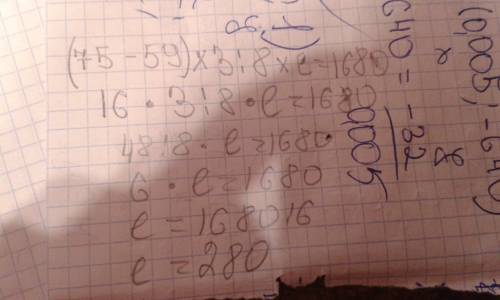 (75-59)×3:8×e=1680
16·3:8·e=1680
48:8·e=1680
6·e=1680
e=1680:6
e=280
(0,005; -640)
640 = -32
0005